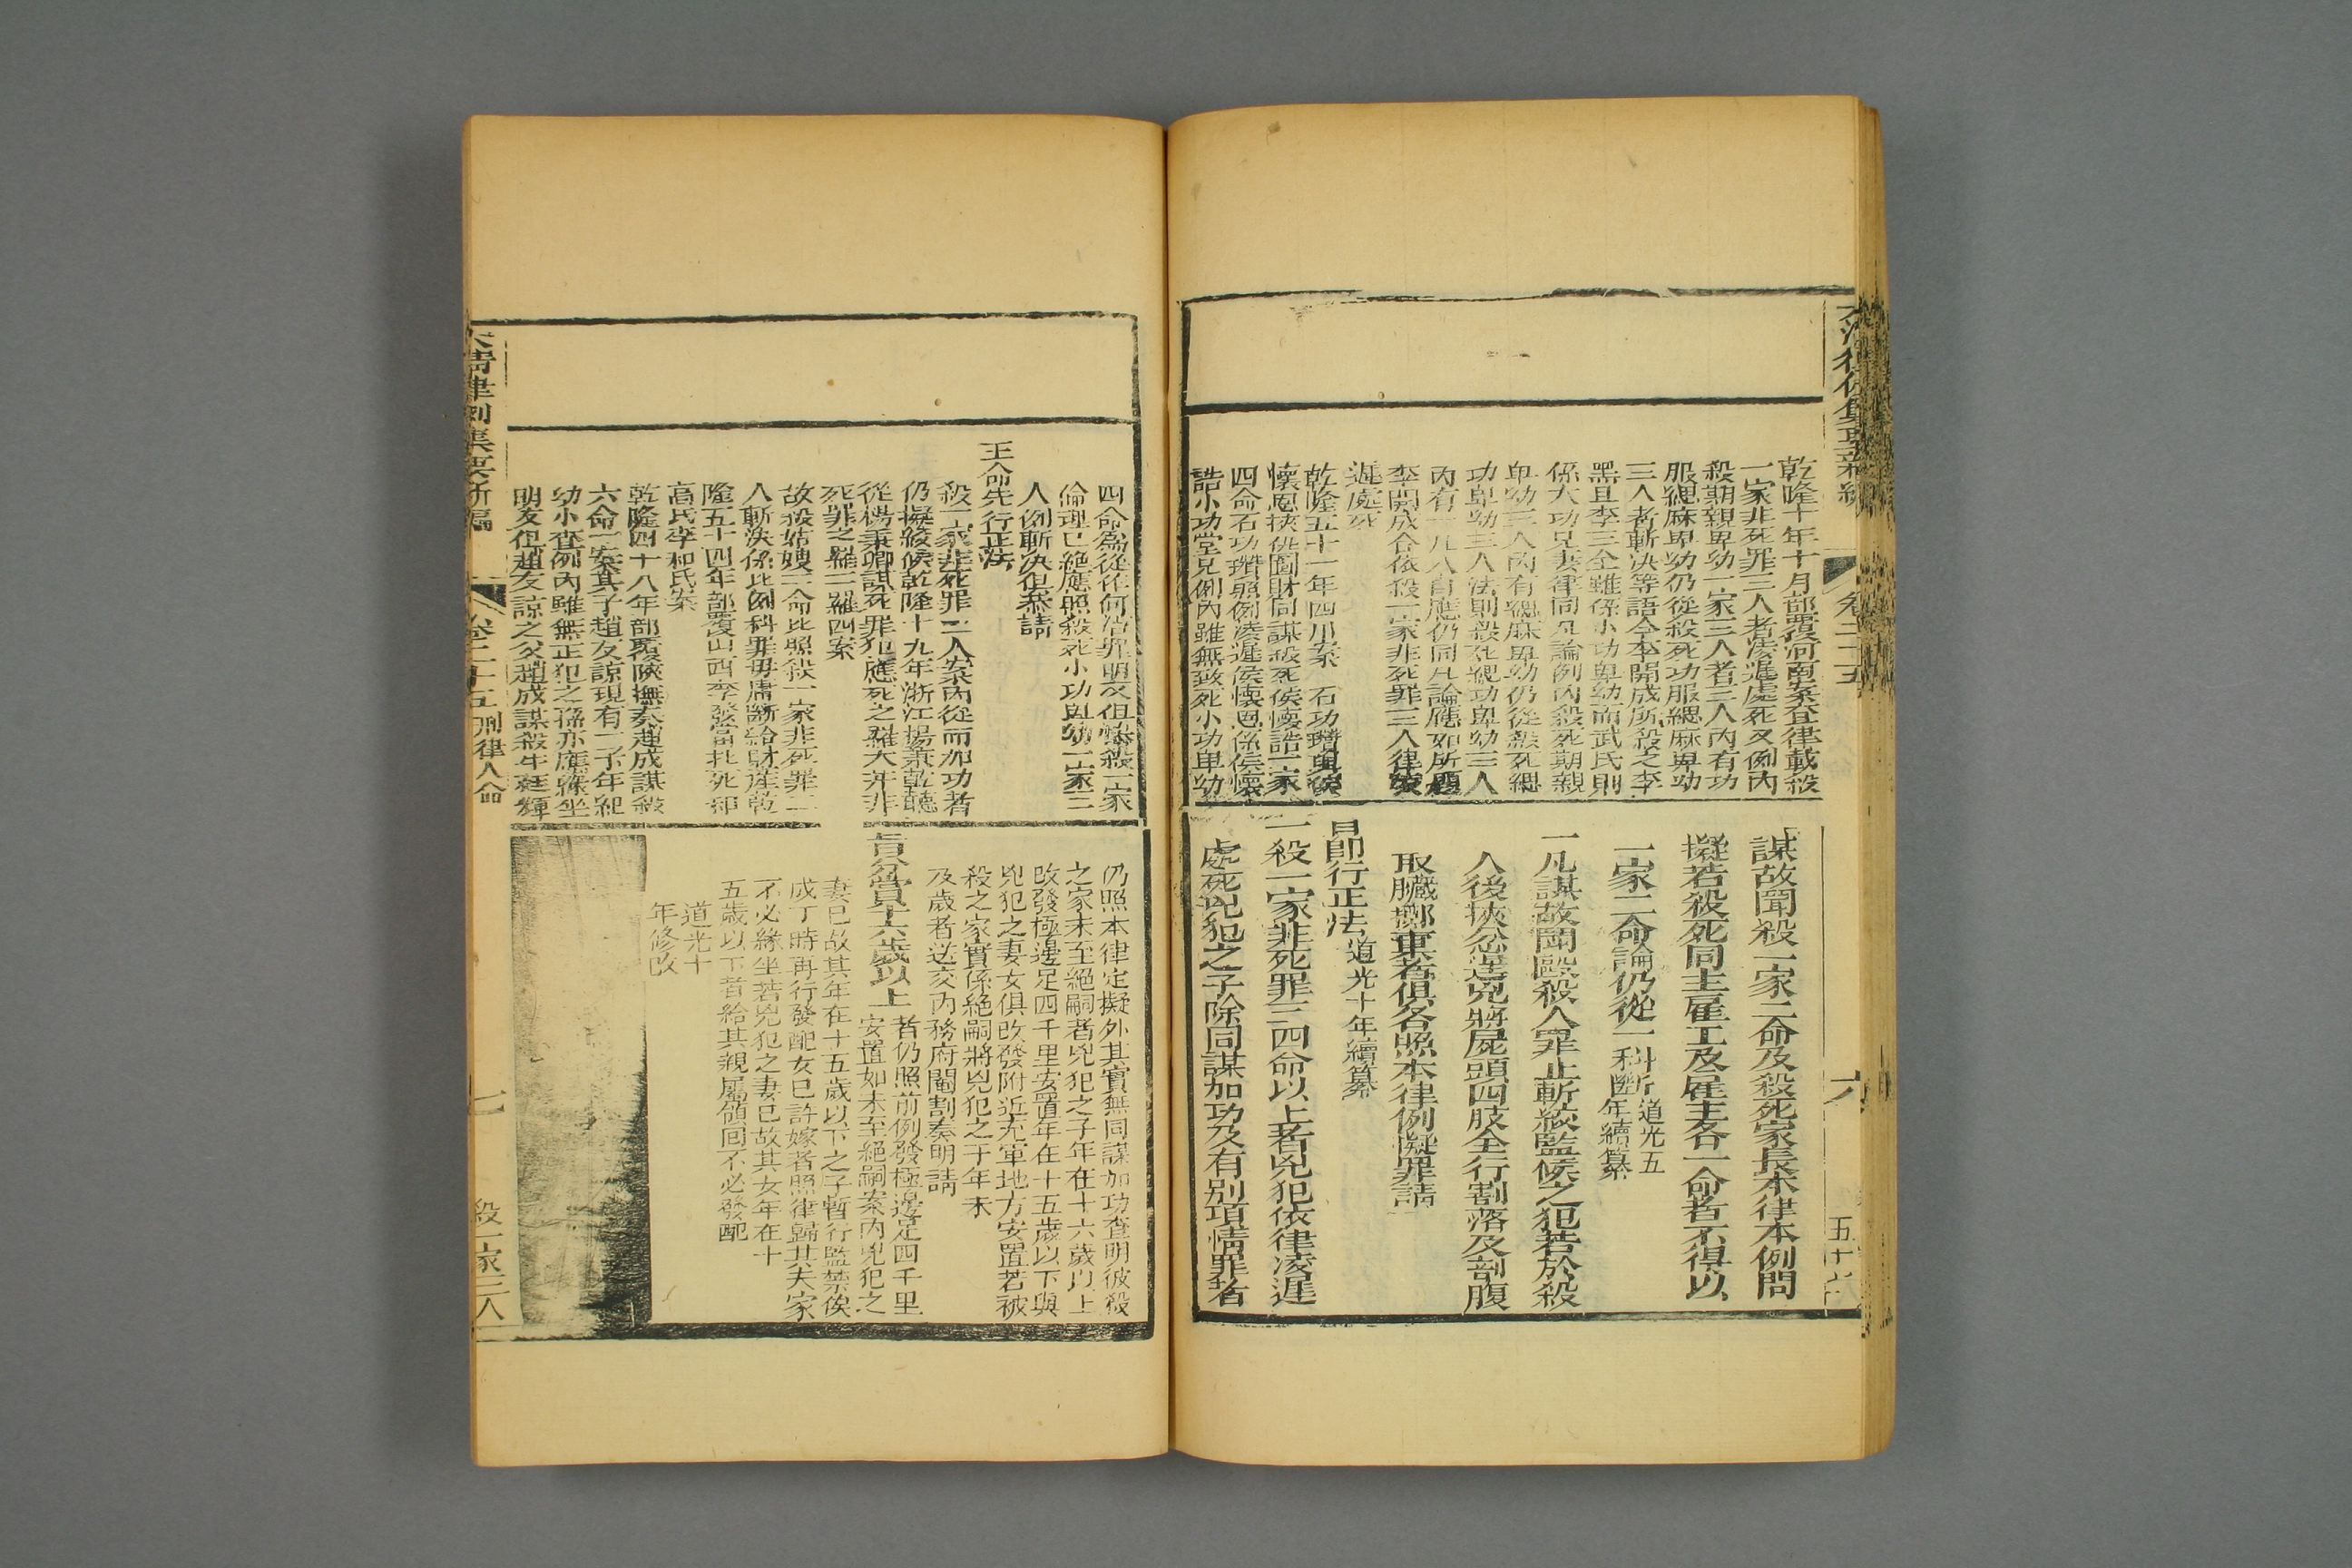 乾隆十年十月部覆河南案查律載殺
一家非死罪三人者凌遲處死又例內
殺期親卑幼一家三人者三人內有功
服緦麻卑幼仍從殺死功服緦麻卑幼
三人者斬決等語今李開成所殺之李
黑旦李三全雖係小功卑幼而武氏則
係大功兄妻律同凡論例內殺死期親
卑幼三人內有緦麻卑幼仍從殺死緦
功卑幼三人法則殺死緦功卑幼三人
內有一凡人自應仍同凡論應如所題
李開成合依殺一家非死罪三人律凌
遲處死
乾隆五十一年四川案 石功瓚與侯
懷恩挾仇圖財同謀殺死侯懷誥一家
四命石功瓚照例凌遲侯懷恩係侯懷
誥小功堂兄例內雖無致死小功卑幼
謀故鬬殺一家二命及殺死家長本律本例問
擬若殺死同主雇工及雇主各一命者不得以
一家二命論仍從一科斷道光五年續纂
一凡謀故鬬毆殺人罪止斬絞監候之犯若於殺
人後挾忿逞兇將屍頭四肢全行割落及剖腹
取臟擲棄者俱各照本律例擬罪請
旨即行正法道光十年續纂
一殺一家非死罪三四命以上者兇犯依律凌遲
處死兇犯之子除同謀加功及有別項情罪者
六
卷二十五
四命為從作何治罪明文但慘殺一家
倫理已絕應照殺死小功卑幼一家三
人例斬決但恭請
王命先行正法
殺一家非死罪二人案內從而加功者
仍擬絞候乾隆十九年浙江楊秉乾聽
從楊秉卿謀死罪犯應死之羅大奔非
死罪之羅二羅四案
故殺姑嫂二命比照殺一家非死罪二
人斬決係比例科罪毋庸斷給財產乾
隆五十四年部覆山西李發富扎死
高氏李和氏案
乾隆四十八年部覆陝撫奏趙成謀殺
六命一案其子趙友諒現有二子年紀
幼小查例內雖無正犯之孫亦應緣坐
明文但趙友諒之父趙成謀殺牛廷輝
仍照本律定擬外其實無同謀加功查明彼殺
之家未至絕嗣者兇犯之子年在十六歲以上
改發極邊足四千里安置年在十五歲以下與
兇犯之妻女俱改發附近充軍地方安置若被
殺之家實係絕嗣將兇犯之子年未
及歲者送交內務府閹割奏明請
旨分賞十六歲以上者仍照前例發極邊足四千里
安置如未至絕嗣案內兇犯之
妻已故其年在十五歲以下之子暫行監禁俟
成丁時再行發配女已許嫁者照律歸其夫家
不必緣坐若兇犯之妻已故其女年在十
五歲以下者給其親屬領回不必發配
道光十
年修改
大清律例集要新編
卷二十五刑律人命
七
殺一家三人